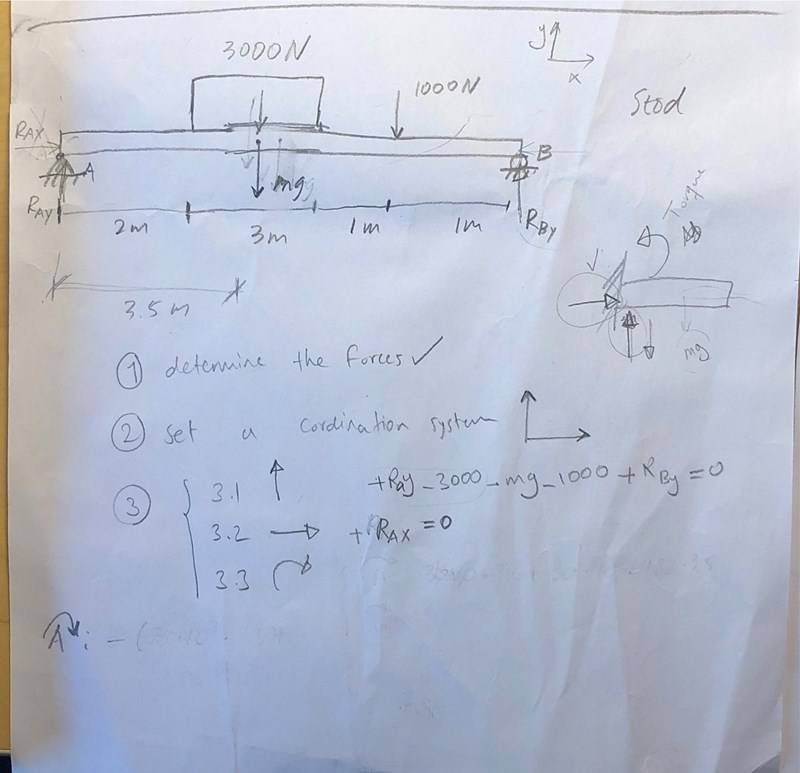 3000N
y
x
1000N
Stod
RAX
A
B
mg
RAY
RBy
2m
3m
1m
1m
Torque
3.5m
mg
① determine the forces ✓
② set a cordination system
③
3.1 ↑ +Ray - 3000 - mg - 1000 + RBy = 0
3.2 → + RAX = 0
3.3
A : -